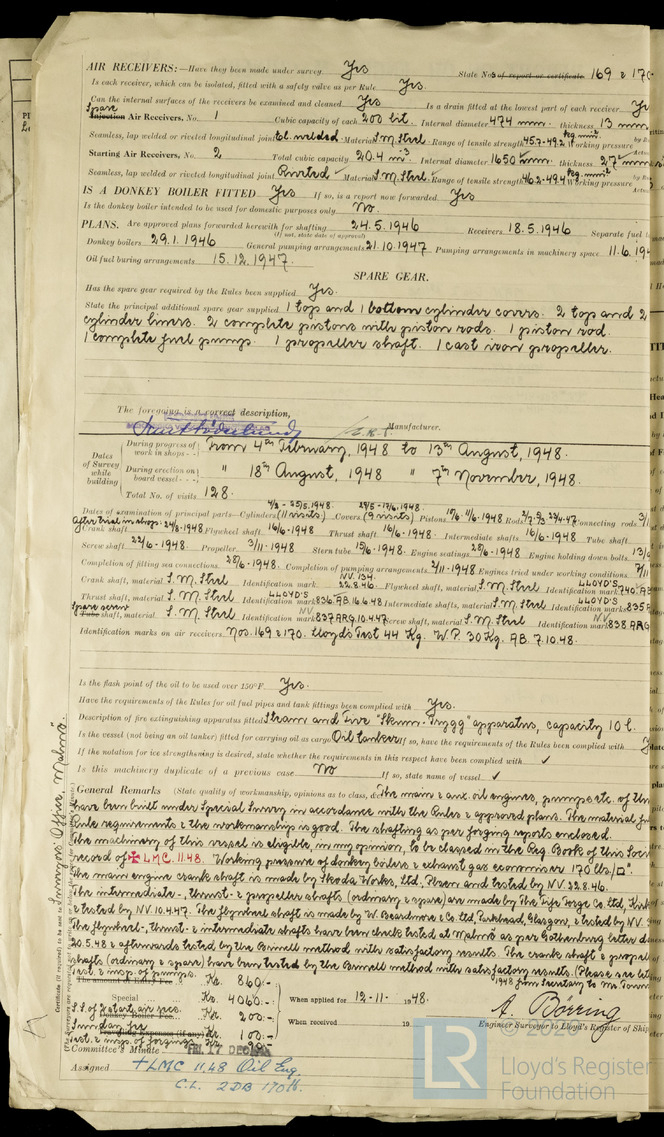 AIR RECEIVERS:—Have they been made under survey Yes State Nos. of report or certificate 169 & 170
Is each receiver, which can be isolated, fitted with a safety valve as per Rule Yes
Can the internal surfaces of the receivers be examined and cleaned Yes Is a drain fitted at the lowest part of each receiver
Spare
Injection Air Receivers, No. 1 Cubic capacity of each 200 lit. Internal diameter 474 mm. thickness 13 mm
Seamless, lap welded or riveted longitudinal joint El. welded Material S.M. Steel Range of tensile strength 45.7-49.2 Kg. mm² Working pressure
Starting Air Receivers, No. 2 Total cubic capacity 20.4 m³ Internal diameter 1650 mm. thickness 27 mm
Seamless, lap welded or riveted longitudinal joint Riveted Material S.M. Steel Range of tensile strength 46.2-49.4 Kg. mm² Working pressure
IS A DONKEY BOILER FITTED Yes If so, is a report now forwarded Yes
Is the donkey boiler intended to be used for domestic purposes only No.
PLANS. Are approved plans forwarded herewith for shafting 24.5.1946 Receivers 18.5.1946 Separate fuel
(If not, state date of approval)
Donkey boilers 29.1.1946 General pumping arrangements 21.10.1947 Pumping arrangements in machinery space 11.6.194
Oil fuel buring arrangements 15.12.1947.
SPARE GEAR.
Has the spare gear required by the Rules been supplied Yes.
State the principal additional spare gear supplied 1 top and 1 bottom cylinder covers. 2 top and 2
cylinder liners. 2 complete pistons with piston rods. 1 piston rod.
1 complete fuel pump. 1 propeller shaft. 1 cast iron propeller.
The foregoing is a correct description,
Manufacturer.
Dates of Survey while building
During progress of work in shops - - From 4th February, 1948 to 13th August, 1948.
During erection on board vessel - - " 18th August, 1948 " 7th November, 1948.
Total No. of visits 128.
4/2 - 25/5.1948. 24/5-17/6.1948.
Dates of examination of principal parts—Cylinders (11 visits) Covers (9 visits) Pistons 10/6. 11/6-1948 Rods Connecting rods
After trial in shops.
Crank shaft 24/8-1948 Flywheel shaft 16/6-1948 Thrust shaft 16/6-1948 Intermediate shafts 16/6-1948 Tube shaft
Screw shaft 22/6-1948. Propeller 3/11-1948 Stern tube 15/6-1948. Engine seatings 28/6-1948 Engine holding down bolts
Completion of fitting sea connections 28/6-1948. Completion of pumping arrangements 2/11-1948 Engines tried under working conditions
Crank shaft, material S.M. Steel Identification mark NV.134. 22.8.46. Flywheel shaft, material S.M. Steel Identification mark LLOYD'S 740
Thrust shaft, material S.M. Steel Identification mark LLOYD'S 836 AB.16.6.48 Intermediate shafts, material S.M. Steel Identification mark LLOYD'S 835
Spare screw
Tube shaft, material S.M. Steel Identification mark N.V. 837 ARG.10.4.47 Screw shaft, material S.M. Steel Identification mark N.V. 838 ARG
Identification marks on air receivers Nos. 169 & 170. Lloyd's Test 44 Kg. W.P. 30 Kg. AB. 7.10.48.
Is the flash point of the oil to be used over 150°F. Yes.
Have the requirements of the Rules for oil fuel pipes and tank fittings been complied with Yes.
Description of fire extinguishing apparatus fitted Steam and Five "Skum-Trygg" apparatus, capacity 10 l.
Is the vessel (not being an oil tanker) fitted for carrying oil as cargo Oil tanker If so, have the requirements of the Rules been complied with
If the notation for ice strengthening is desired, state whether the requirements in this respect have been complied with ✓
Is this machinery duplicate of a previous case No If so, state name of vessel ✓
General Remarks (State quality of workmanship, opinions as to class, &c. The main & aux. oil engines, pumps etc. of this
have been built under Special Survey in accordance with the Rules & approved plans. The material
Rule requirements & the workmanship is good. The shafting as per forging reports enclosed.
The machinery of this vessel is eligible, in my opinion, to be classed in the Reg. Book of this Soci
record of ✠ LMC. 11.48. Working pressure of donkey boilers & exhaust gas economiser 170 lbs/□".
The main engine crank shaft is made by Skoda Works, Ltd, Plzen and tested by NV. 22.8.46.
The intermediate-, thrust- & propeller shafts (ordinary & spare) are made by The Fife Forge Co. Ltd, Kirk
& tested by NV. 10.4.47. The flywheel shaft is made by W. Beardmore & Co. Ltd, Parkhead, Glasgow, & tested by NV.
The flywheel-, thrust- & intermediate shafts have been check tested at Malmö as per Gothenburg letter
20.5.48 & afterwards tested by the Brinell method with satisfactory results. The crank shaft & propel
shafts (ordinary & spare) have been tested by the Brinell method with satisfactory results. (Please see let
1948 from Secretary to Mr.
Test. & insp. of pumps.
The amount of Entry Fee Kr. 860:-
Special Kr. 4060:-
S.S. of 2 start. air rec.
Donkey Boiler Fee Kr. 200:-
Sunday fee
Travelling Expenses (if any) Kr. 100:-
Test. & insp. of forgings
When applied for 12-11-1948.
When received 19
A. Börring
Engineer Surveyor to Lloyd's Register of Ship
Committee's Minute FRI. 17 DEC
Assigned + LMC 11.48 Oil Eng.
C.L. 2DB 170 lb.
Surveyors' Office, Malmö.
Certificate (if required) to be sent to
© 2020
LR
Lloyd's Register
Foundation